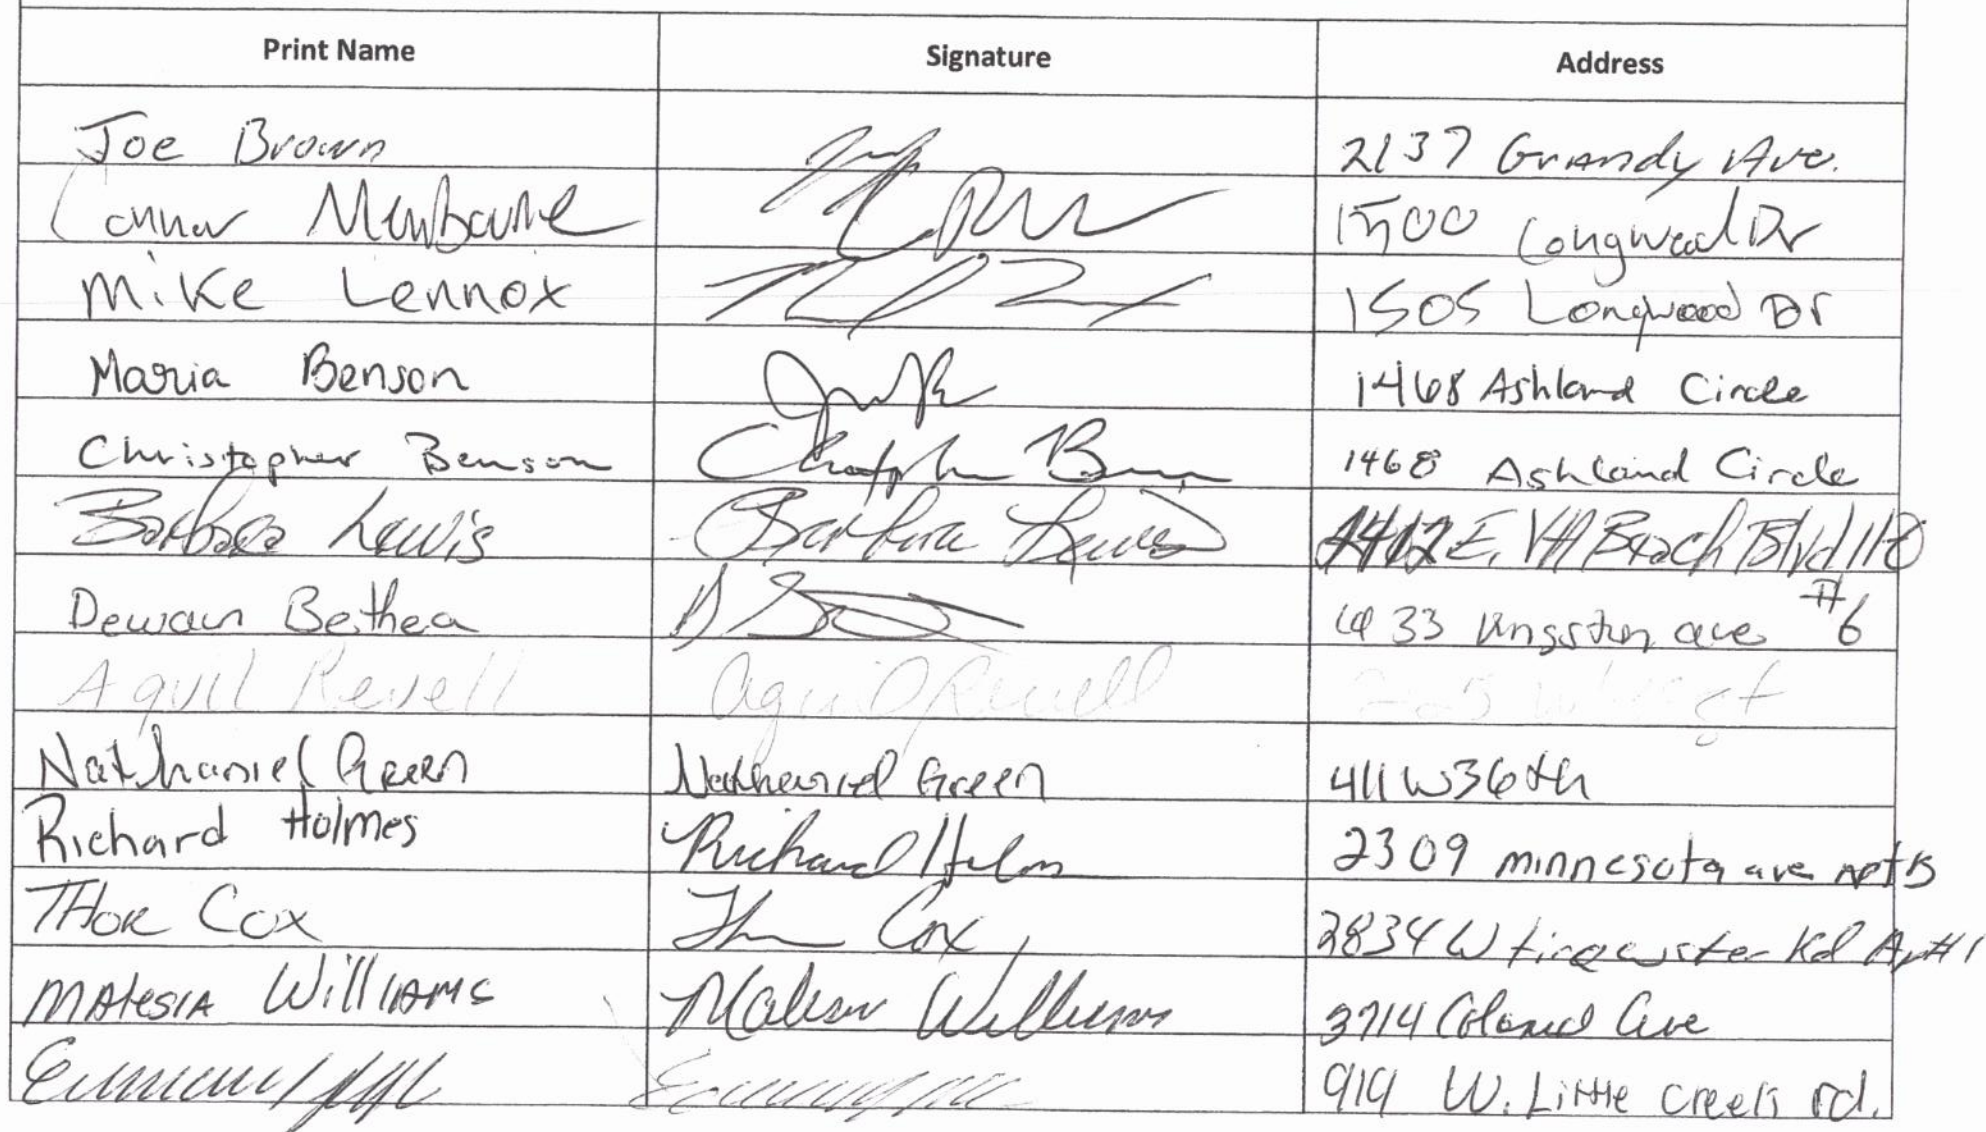 Print Name Signature Address
Joe Brown 2137 Grandy Ave.
Connor 1500 Longwood Dr
Mike Lennox 1505 Longwood Dr
Maria Benson 1468 Ashland Circle
Christopher Benson Christopher Benson 1468 Ashland Circle
Barbara Lewis Barbara Lewis E. VA Beach Blvd 110
Dewain Bethea 33 Kingston ave #6
Aquil Revell Aquil Revell W st
Nathaniel Green Nathaniel Green 411 W 36th
Richard Holmes Richard Holmes 2309 minnesota ave Apt B
THOR Cox Thor Cox 2834 W Rd Apt 1
Malesia Williams Malesia Williams 3714 Colonial Ave
919 W. Little Creek rd.